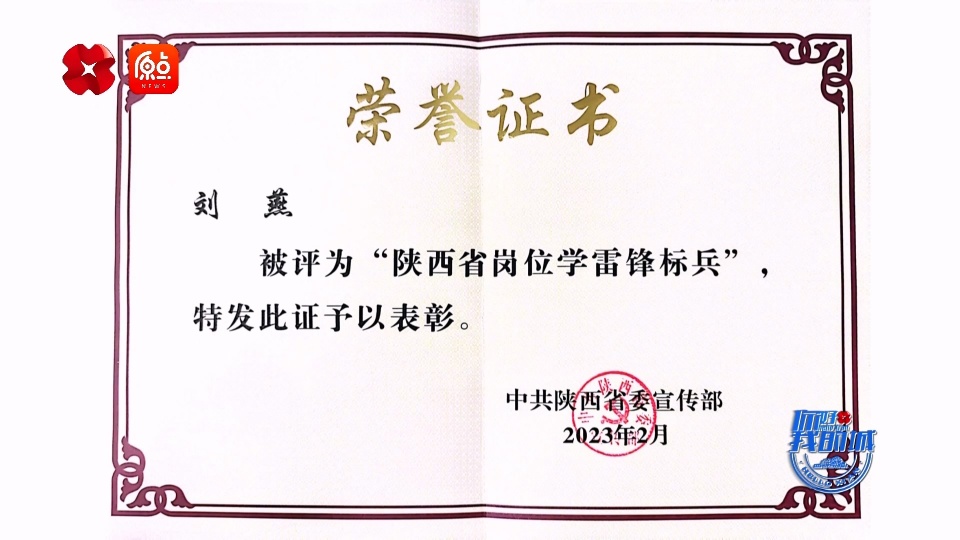 原点
NEWS
荣誉证书
刘 燕
被评为“陕西省岗位学雷锋标兵”，
特发此证予以表彰。
中共陕西省委宣传部
2023年2月
你好
我的城